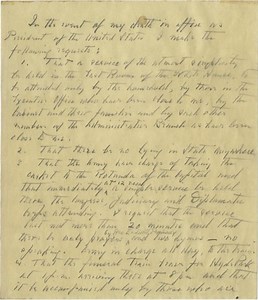 In the event of my death in office as
President of the United States I make the
following requests:
1. That a service of the utmost simplicity
be held in the East Room of the White House, to
be attended only by the household, by those in the
Executive Offices who have been close to me, by the
Cabinet and their families and by such other
members of the Administrative Branch as have been
close to me.
2. That there be no lying in state anywhere.
3. That the Army have charge of taking the
casket to the Rotunda of the Capitol and
that immediately a simple service be held
there, the Congress, Judiciary and Diplomatic
Corps attending. I request that the service
last not more than 20 minutes and that
there be only prayers, and two hymns — no
speaking.
4. That the funeral train leave for Hyde Park
at 10 p.m. arriving there at 8 a.m. and that
it be accompanied only by those who are